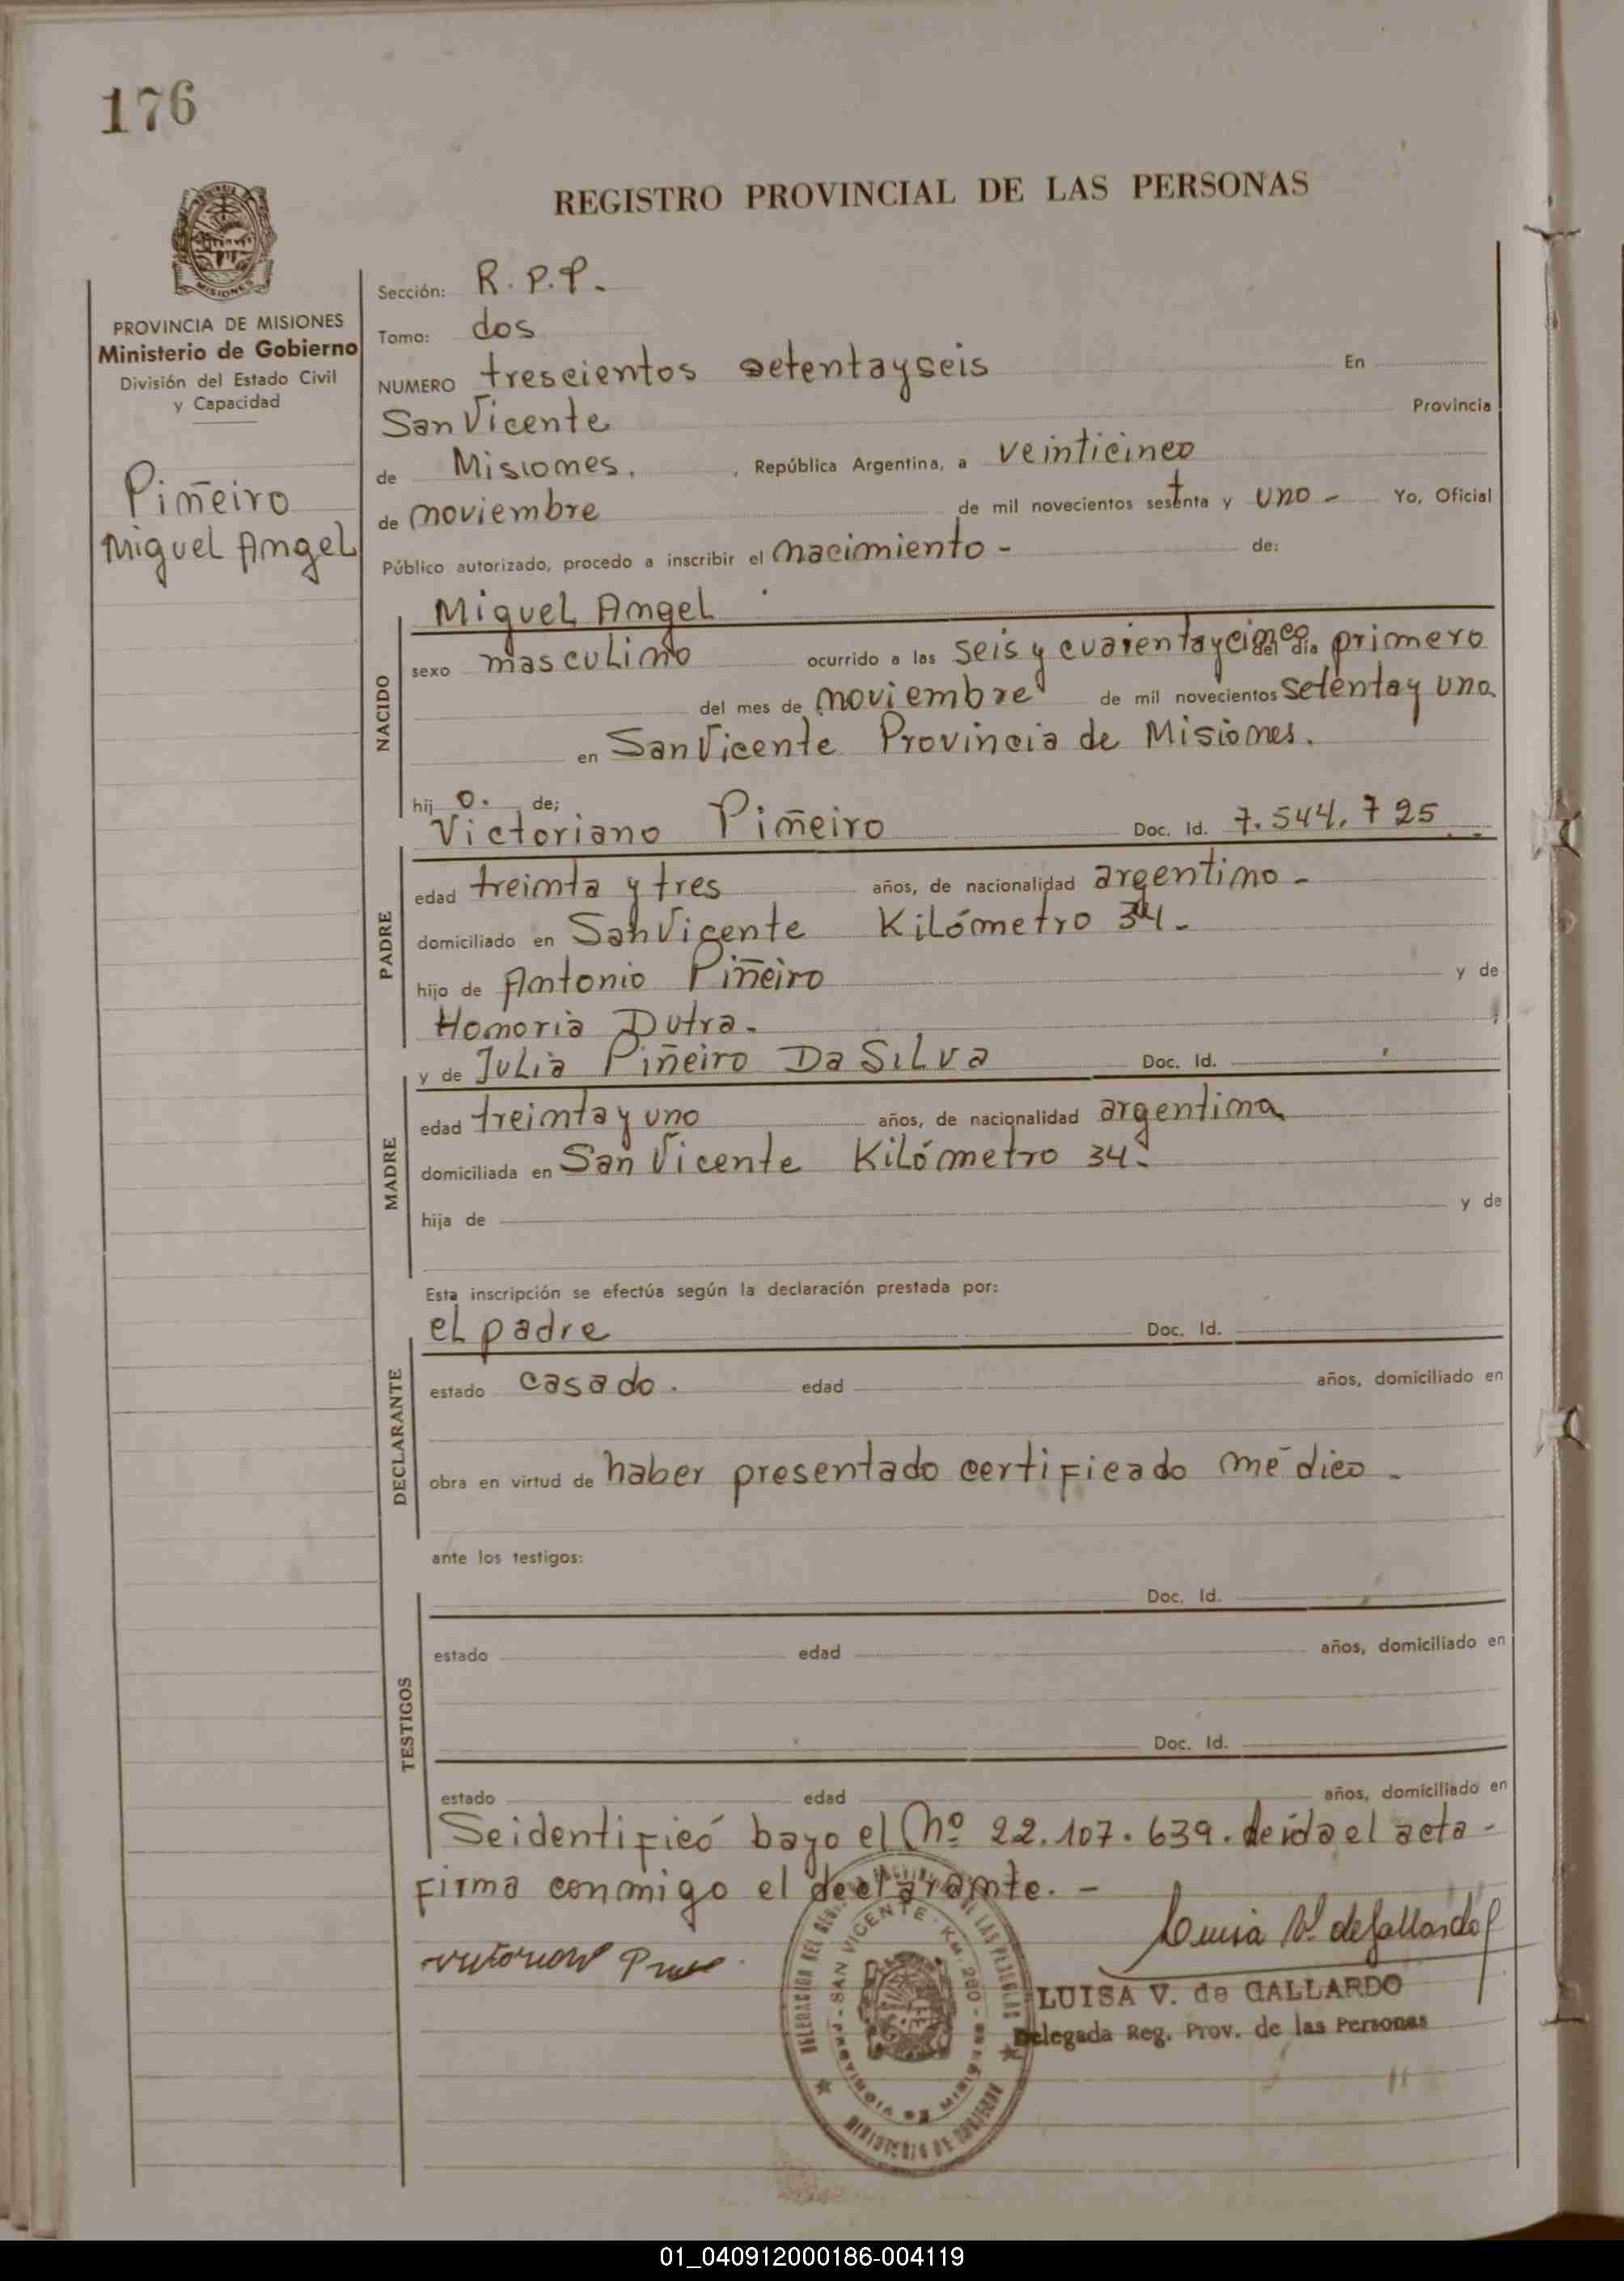 176
REGISTRO PROVINCIAL DE LAS PERSONAS
MISIONES
PROVINCIA DE MISIONES
Ministerio de Gobierno
División del Estado Civil
y Capacidad
Piñeiro
Miguel Angel
Sección: R.P.P.
Tomo: dos
NUMERO trescientos setentayseis En
San Vicente Provincia
de Misiones. , República Argentina, a veinticinco
de noviembre de mil novecientos setenta y uno - Yo, Oficial
Público autorizado, procedo a inscribir el nacimiento - de:
NACIDO
Miguel Angel
sexo masculino ocurrido a las seis y cuarentaycinco del día primero
del mes de noviembre de mil novecientos setentay uno.
en San Vicente Provincia de Misiones.
hij o. de;
PADRE
Victoriano Piñeiro Doc. Id. 7.544.725
edad treinta y tres años, de nacionalidad argentino -
domiciliado en San Vicente Kilómetro 34 -
hijo de Antonio Piñeiro y de
Honoria Dutra. ;
MADRE
y de Julia Piñeiro Da Silva Doc. Id.
edad treinta y uno años, de nacionalidad argentina
domiciliada en San Vicente Kilómetro 34.
hija de y de
Esta inscripción se efectúa según la declaración prestada por:
DECLARANTE
el padre Doc. Id.
estado casado. edad años, domiciliado en
obra en virtud de haber presentado certificado médico -
ante los testigos:
TESTIGOS
Doc. Id.
estado edad años, domiciliado en
Doc. Id.
estado edad años, domiciliado en
Se identificó bajo el Nº 22.107.639. leída el acta -
firma conmigo el declarante. -
Luisa V. de Gallardo
LUISA V. de GALLARDO
Delegada Reg. Prov. de las Personas
DELEGACION DEL REG. DE LAS PERSONAS
SAN VICENTE - KM. 280 -
PROVINCIA DE MISIONES
MINISTERIO DE GOBIERNO
01_040912000186-004119